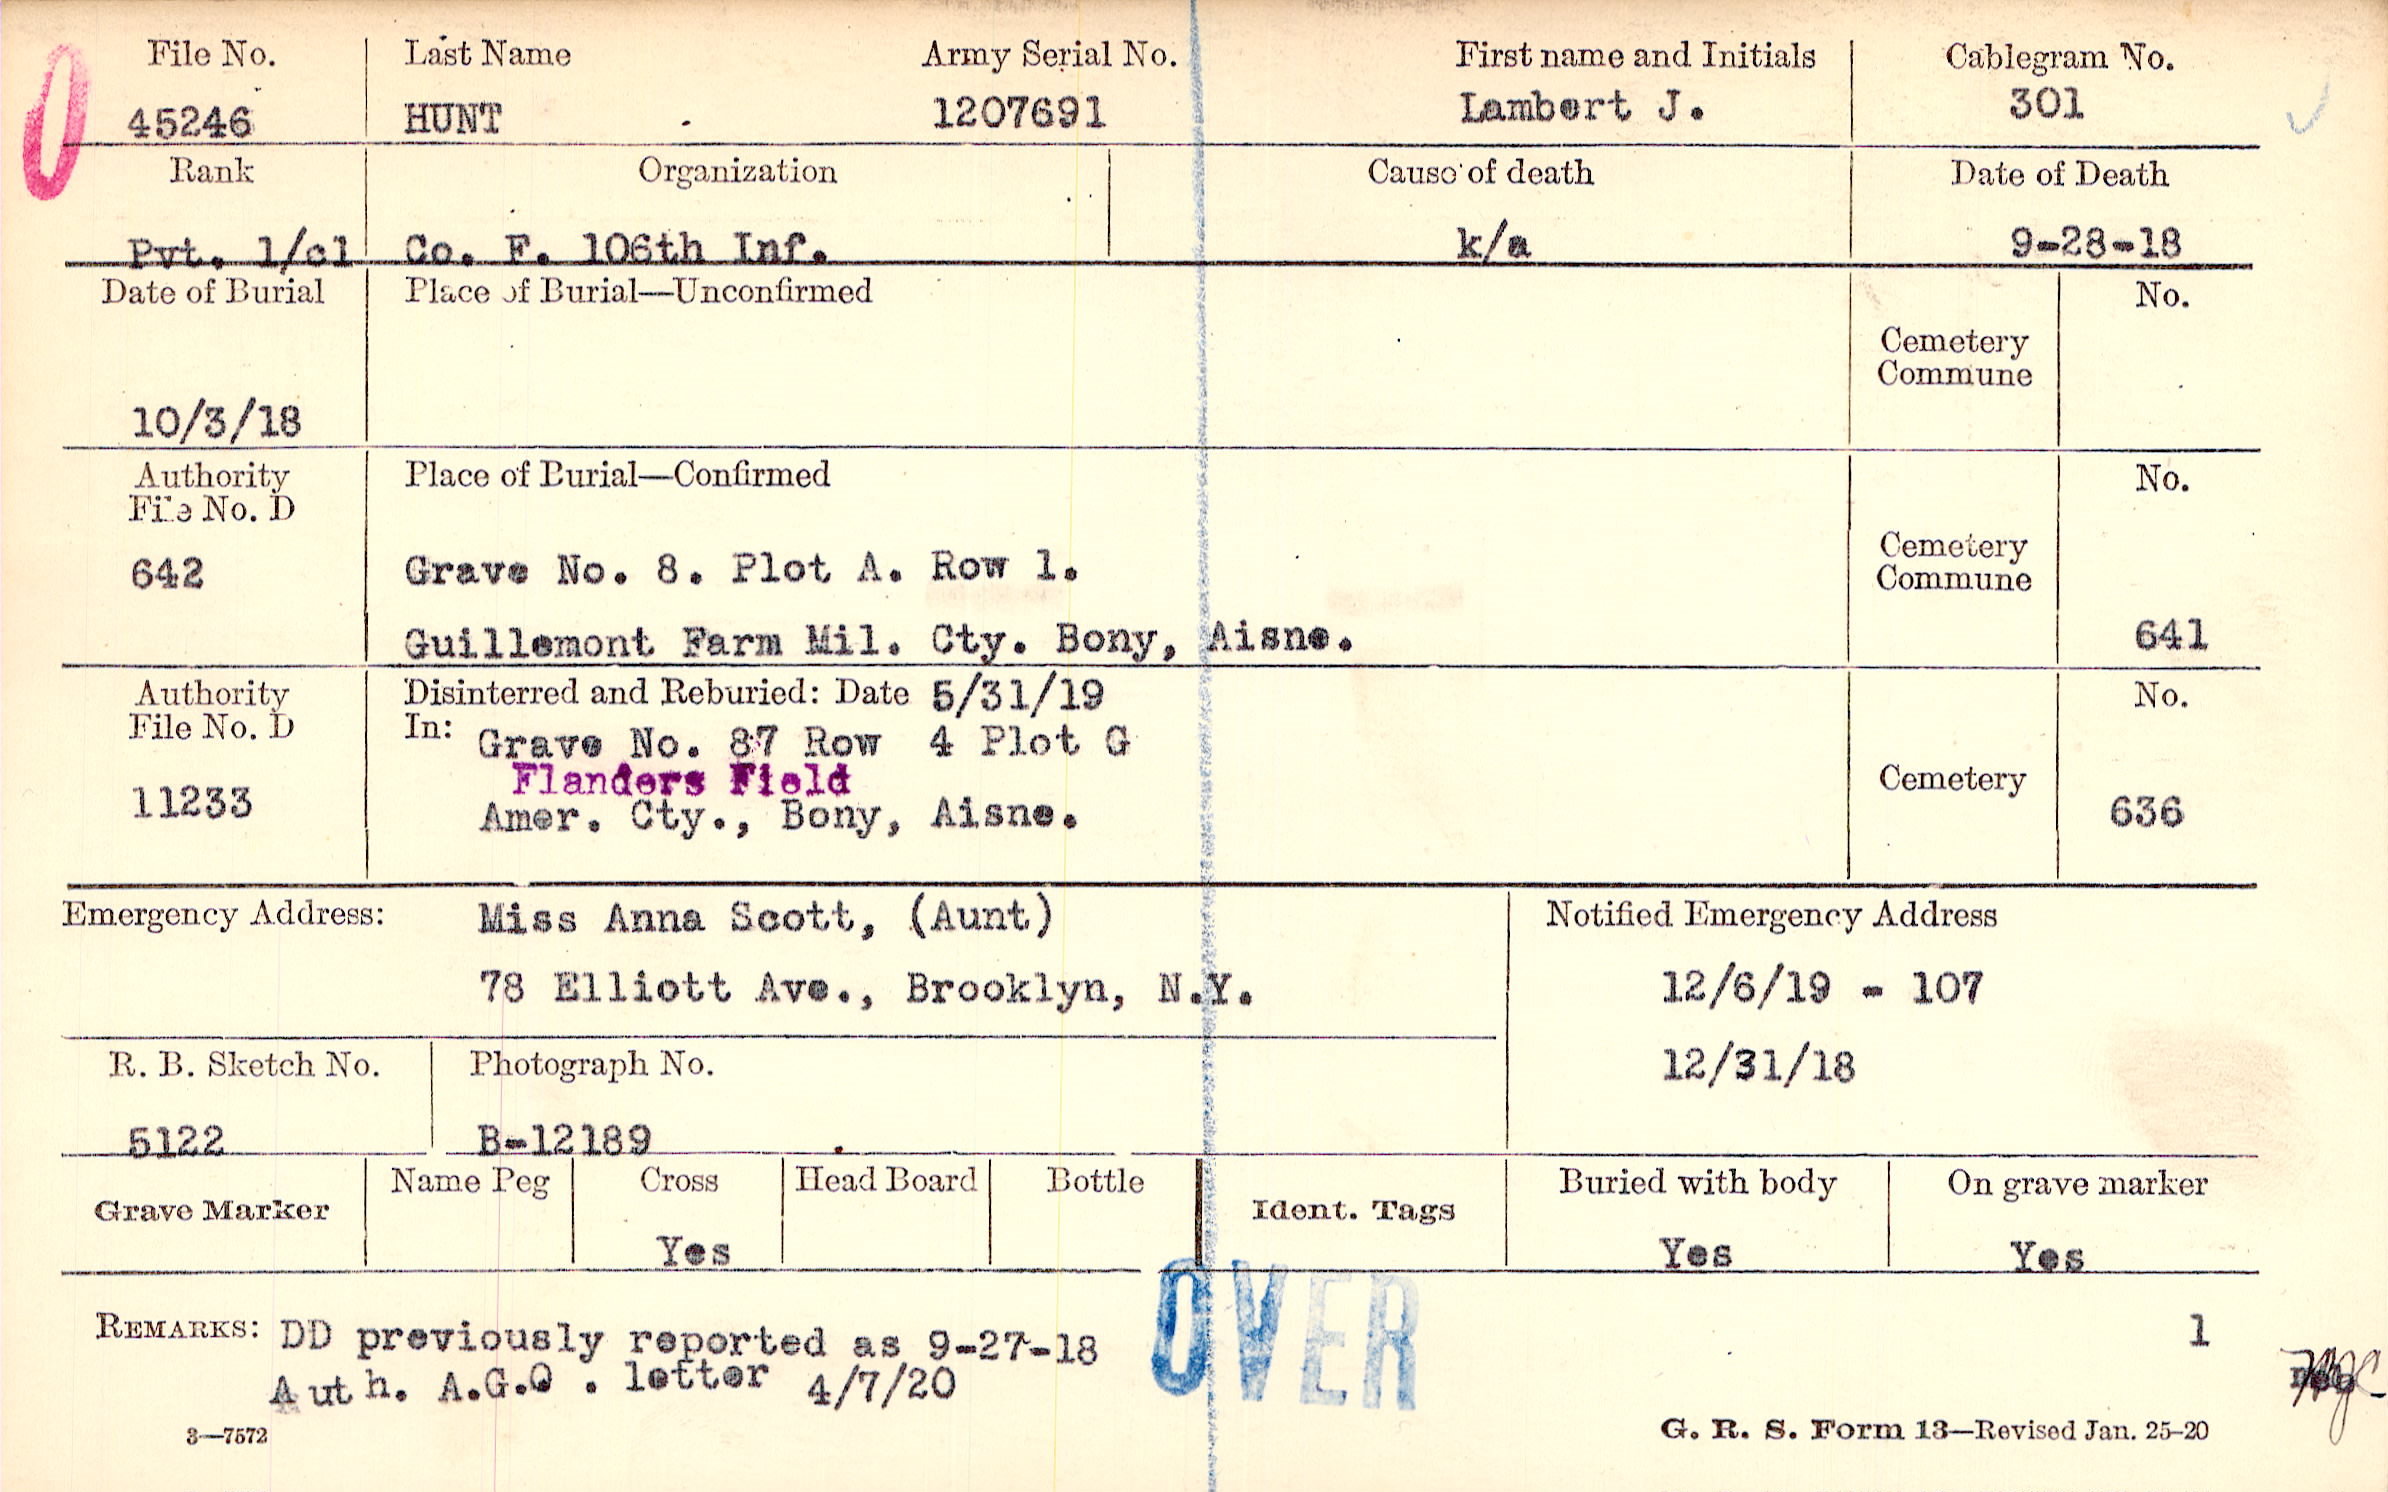 File No. Last Name Army Serial No. First name and Initials Cablegram No.
45246 HUNT 1207691 Lambert J. 301
Rank Organization Cause of death Date of Death
Pvt. 1/cl Co. F. 106th Inf. k/a 9-28-18
Date of Burial Place of Burial—Unconfirmed No.
Cemetery
Commune
10/3/18
Authority Place of Burial—Confirmed No.
File No. D
Cemetery
Commune
642 Grave No. 8. Plot A. Row 1.
Guillemont Farm Mil. Cty. Bony, Aisne. 641
Authority Disinterred and Reburied: Date 5/31/19 No.
File No. D In: Grave No. 87 Row 4 Plot G
Flanders Field Cemetery
11233 Amer. Cty., Bony, Aisne. 636
Emergency Address: Miss Anna Scott, (Aunt) Notified Emergency Address
78 Elliott Ave., Brooklyn, N.Y. 12/6/19 - 107
R. B. Sketch No. Photograph No. 12/31/18
5122 B-12189
Grave Marker Name Peg Cross Head Board Bottle Ident. Tags Buried with body On grave marker
Yes Yes Yes
OVER
REMARKS: DD previously reported as 9-27-18 1
Auth. A.G.O. letter 4/7/20
3—7572 G. R. S. Form 13—Revised Jan. 25-20